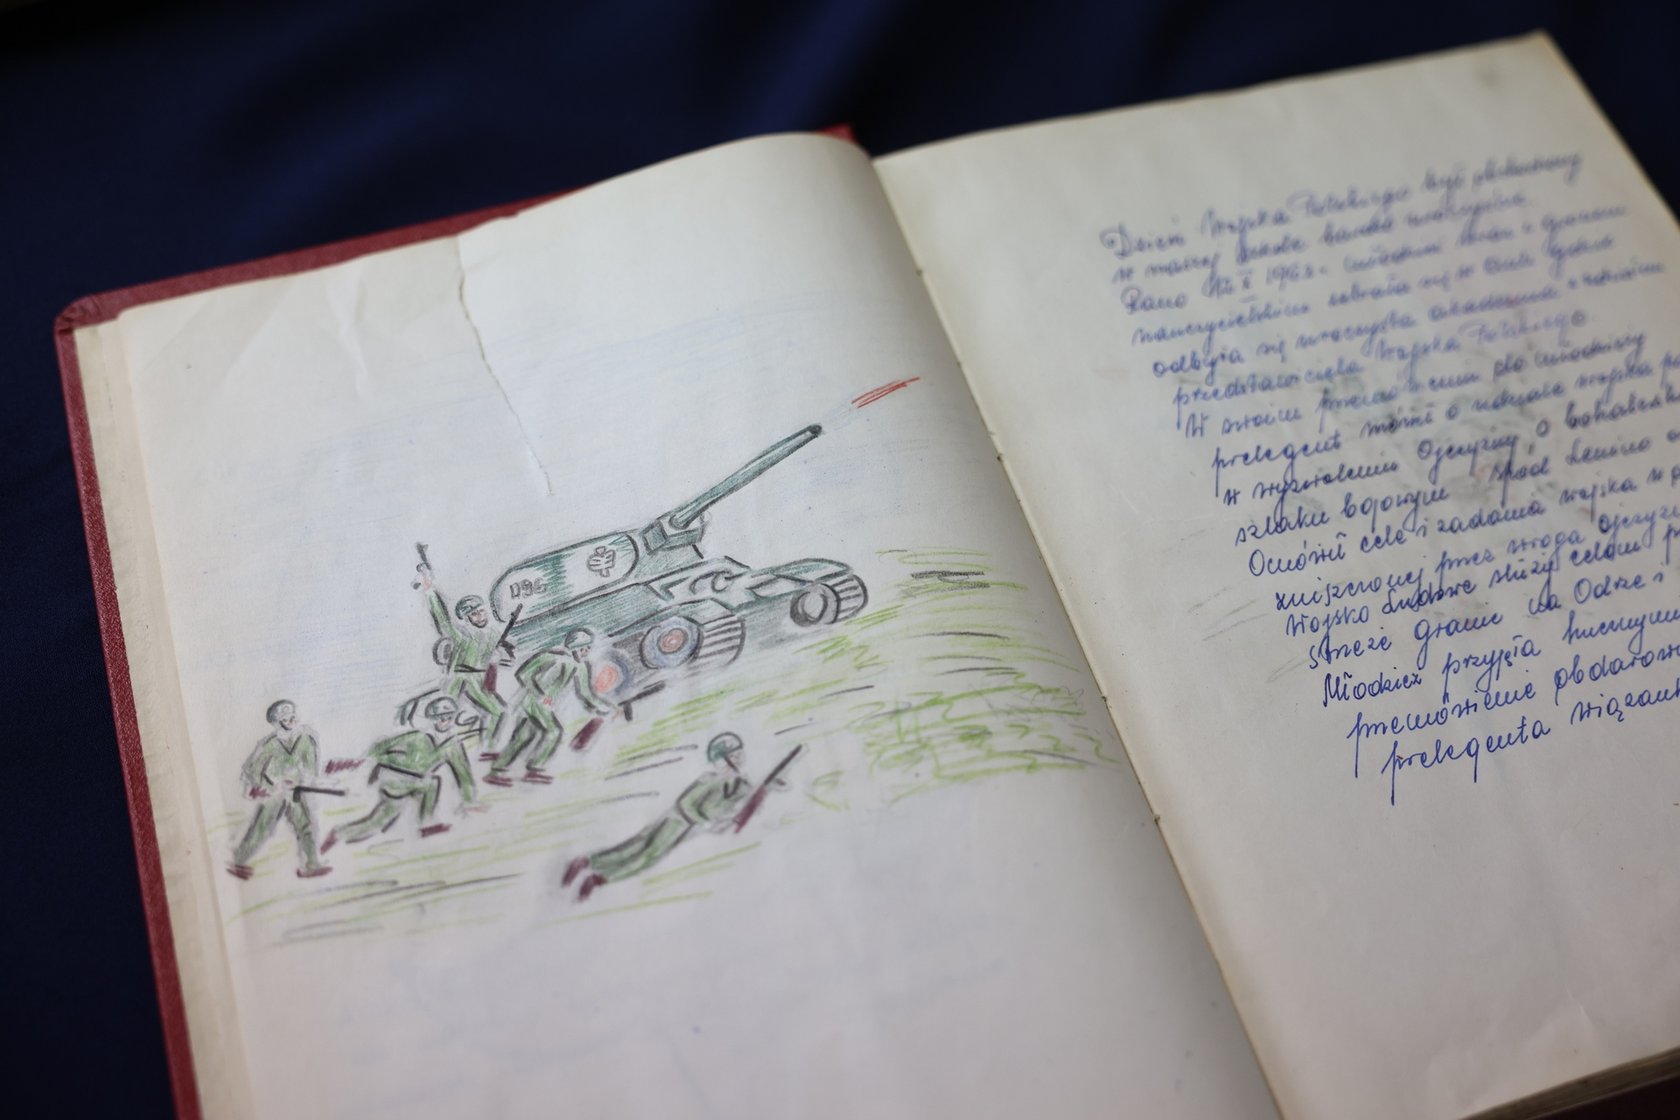 196
Dzień Wojska Polskiego był obchodzony
w naszej szkole bardzo uroczyście.
Rano 12 X 1968 r. młodzież wraz z gronem
nauczycielskim zebrała się w auli gdzie
odbyła się uroczysta akademia z udziałem
przedstawiciela Wojska Polskiego.
W swoim przemówieniu do młodzieży
prelegent mówił o udziale wojska
w wyzwoleniu Ojczyzny, o bohaterskim
szlaku bojowym spod Lenino
Omówił cele i zadania wojska w
zniszczonej przez wroga ojczyźnie
Wojsko Ludowe służy celom
strzeże granic na Odrze i
Młodzież przyjęła hucznymi
przemówienie obdarowując
prelegenta wiązanką